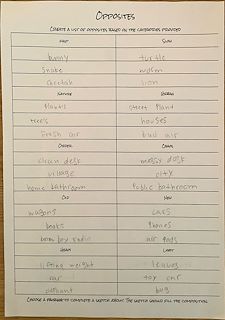 OPPOSITES
CREATE A LIST OF OPPOSITES BASED ON THE CATEGORIES PROVIDED
FAST SLOW
bunny turtle
snake worm
cheetah lion
NATURE URBAN
plants street plant
trees houses
fresh air bad air
ORDER CHAOS
clean desk messy desk
village city
home bathroom public bathroom
OLD NEW
wagons cars
books phones
boom box radio air pods
HEAVY LIGHT
lifting weight leaves
car toy car
elephant bug
CHOOSE A PAIRING TO COMPLETE A SKETCH ABOUT. THE SKETCH SHOULD FILL THE COMPOSITION.